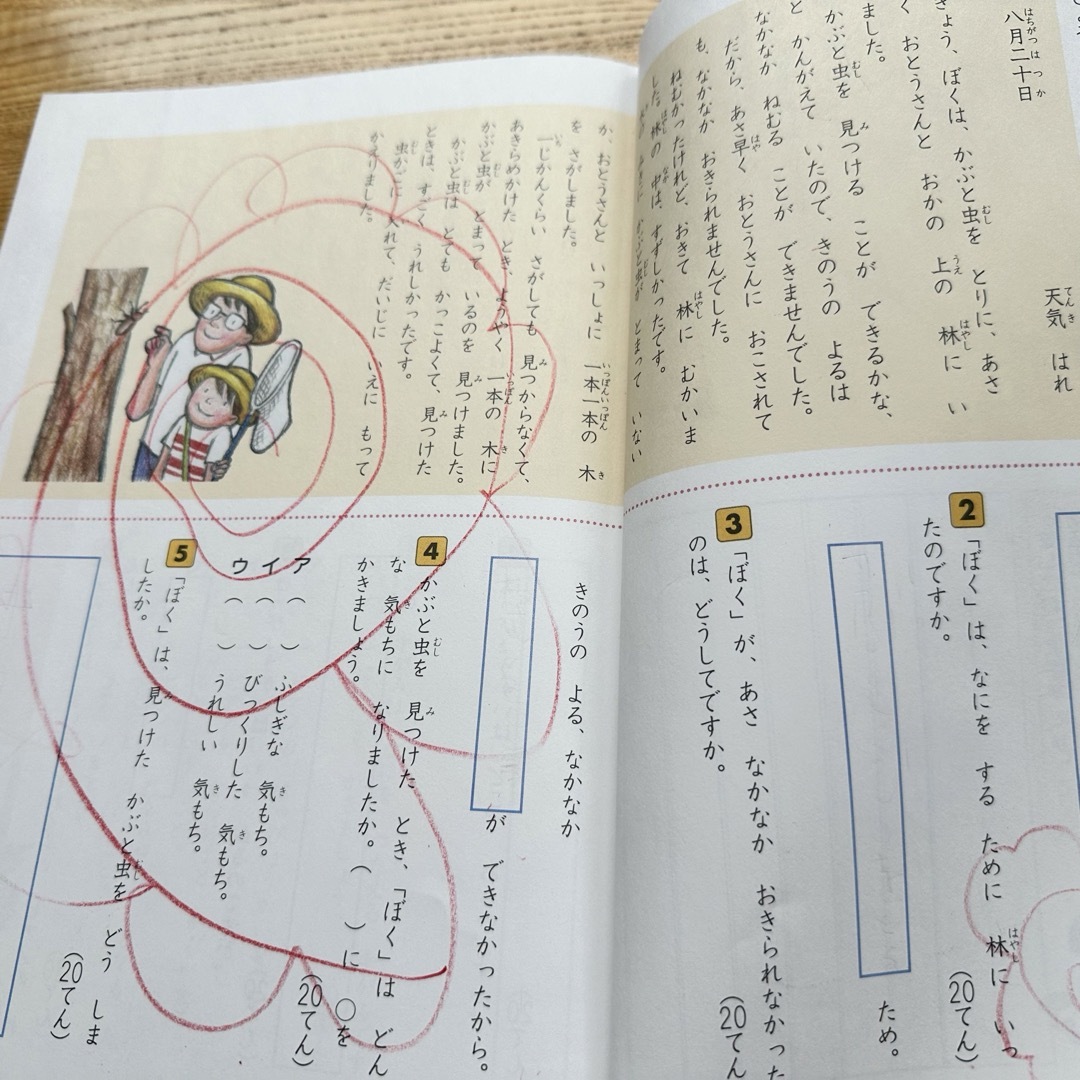 八月二十日　天気　はれ
きょう、ぼくは、かぶと虫を　とりに、あさ
く　おとうさんと　おかの　上の　林に　い
ました。
かぶと虫を　見つける　ことが　できるかな、
と　かんがえて　いたので、きのうの　よるは
なかなか　ねむる　ことが　できませんでした。
だから、あさ早く　おとうさんに　おこされて
も、なかなか　おきられませんでした。
ねむかったけれど、おきて　林に　むかいま
した。林の　中は、すずしかったです。
かぶと虫が　とまって　いない
か、おとうさんと　いっしょに　一本一本の　木
を　さがしました。
一じかんくらい　さがしても　見つからなくて、
あきらめかけた　とき、ようやく　一本の　木に
かぶと虫が　とまって　いるのを　見つけました。
かぶと虫は　とても　かっこよくて、見つけた
ときは、すごく　うれしかったです。
虫かごに　入れて、だいじに　いえに　もって
かえりました。
2　「ぼく」は、なにを　する　ために　林に　いっ
たのですか。　(20てん)
ため。
3　「ぼく」が、あさ　なかなか　おきられなかった
のは、どうしてですか。　(20てん
きのうの　よる、なかなか
が　できなかったから。
4　かぶと虫を　見つけた　とき、「ぼく」は　どん
な　気もちに　なりましたか。（　）に　○を
かきましょう。　(20てん)
ア（　）ふしぎな　気もち。
イ（　）びっくりした　気もち。
ウ（　）うれしい　気もち。
5　「ぼく」は、見つけた　かぶと虫を　どう　しま
したか。　(20てん)